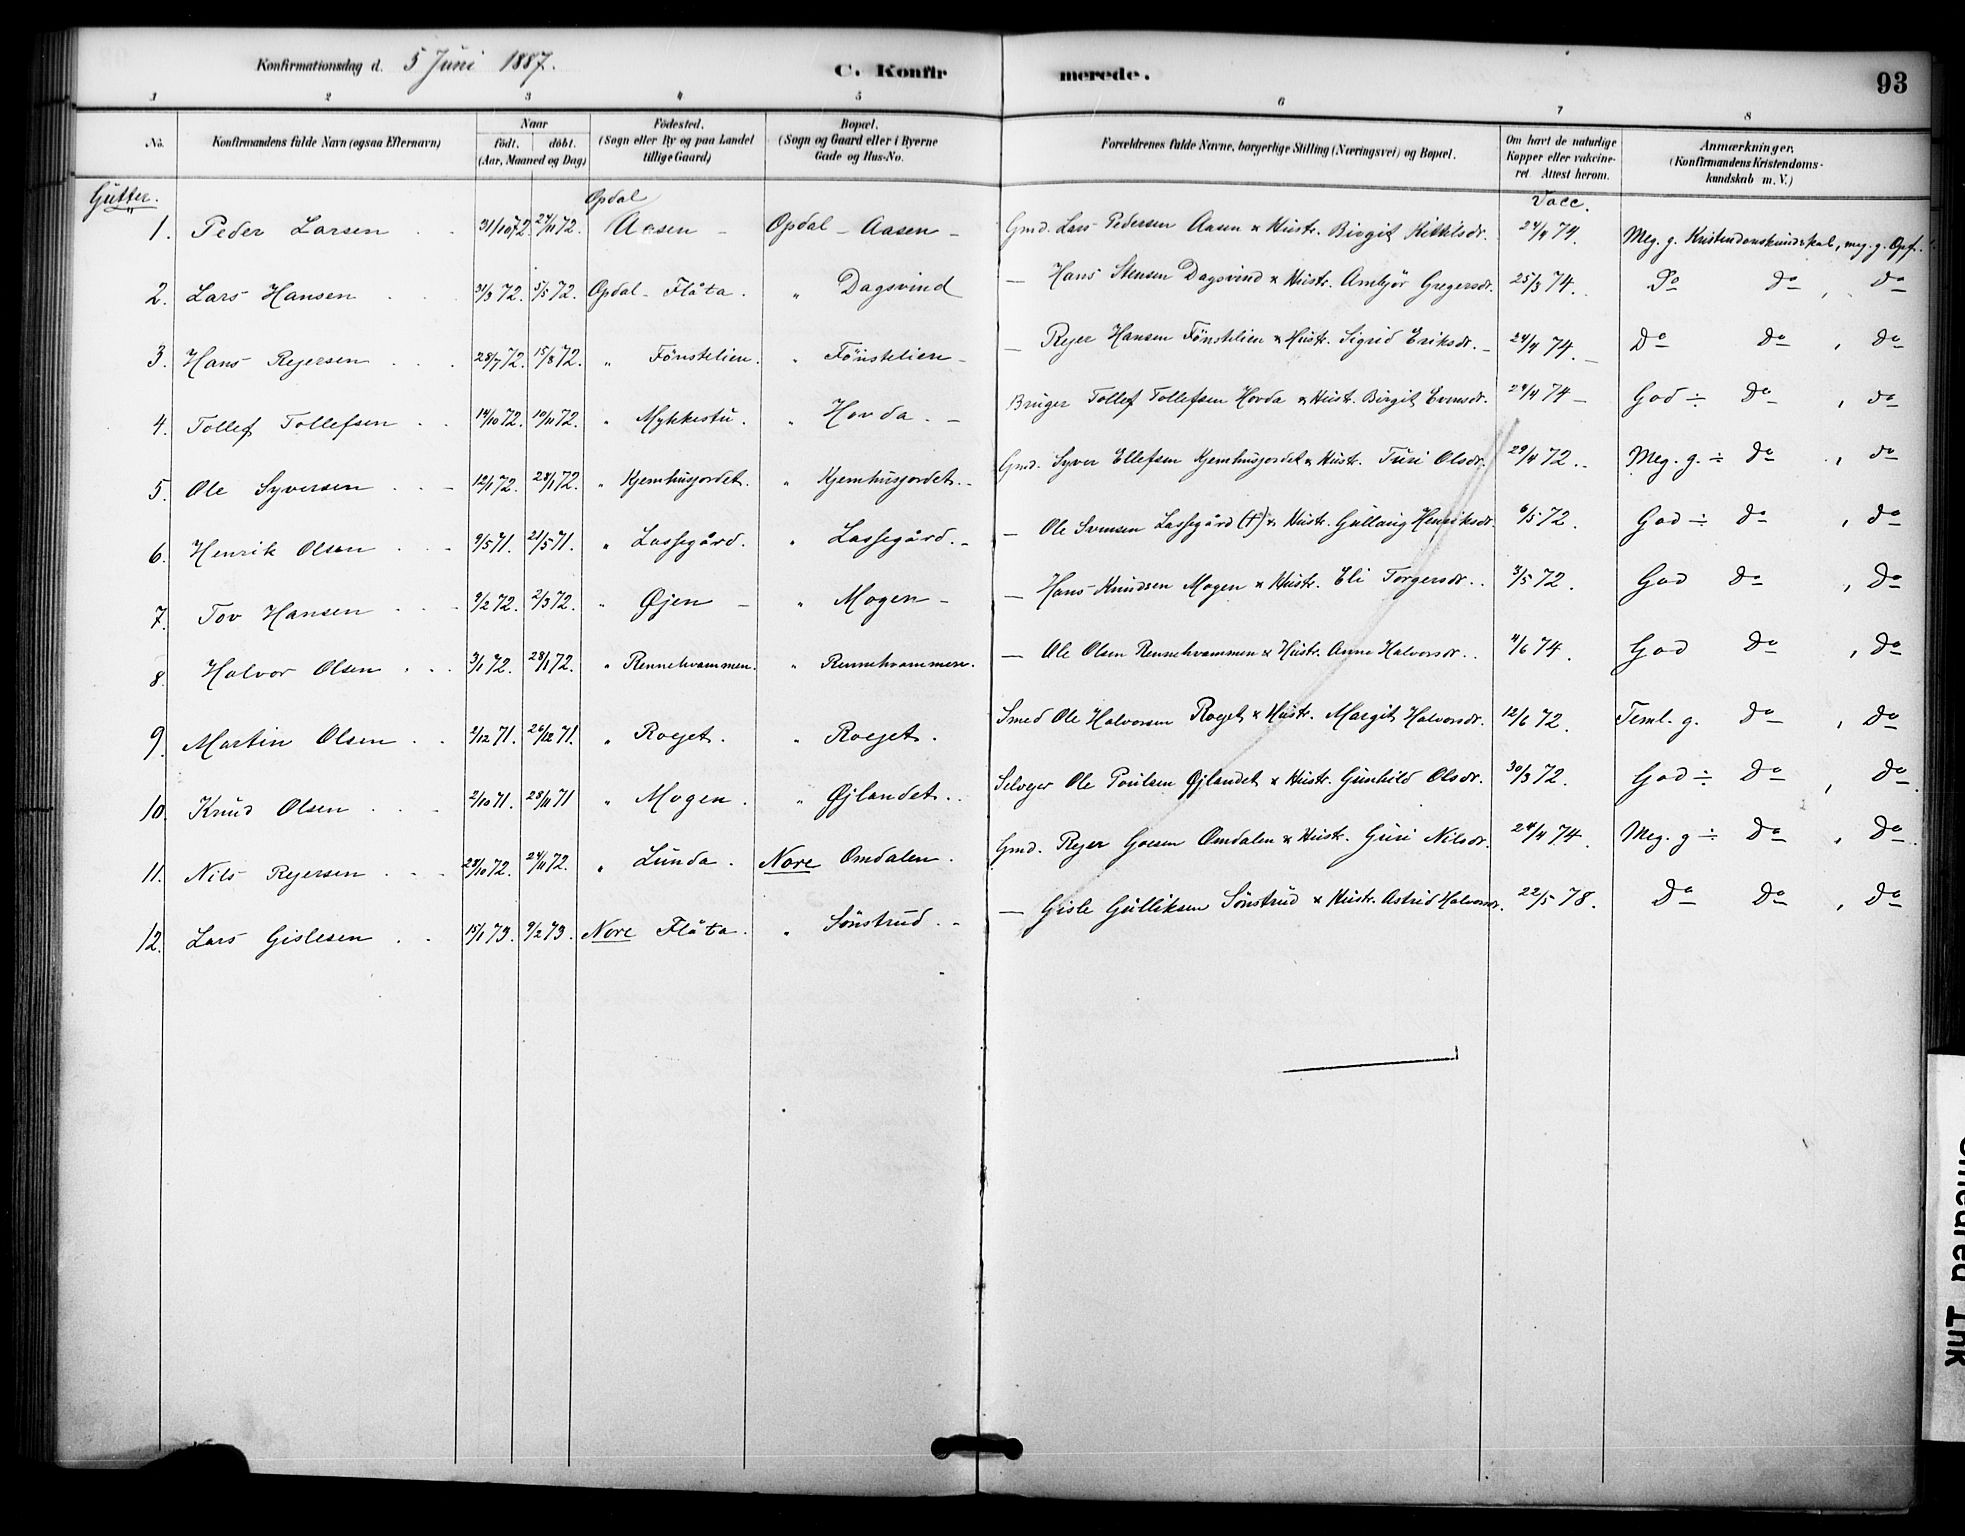 Konfirmationsdag d. 5 Juni 1887.
C. Konfirmerede.
93
1 2 3 4 5 6 7 8
No. Konfirmandens fulde Navn (ogsaa Efternavn) Naar født. døbt. (Aar, Maaned og Dag) Fødested. (Sogn eller By og paa Landet tillige Gaard) Bopæl. (Sogn og Gaard eller i Byerne Gade og Hus-No. Forældrenes fulde Navne, borgerlige Stilling (Næringsvei) og Bopæl. Om havt de naturlige Kopper eller vakcineret. Attest herom. Anmærkninger. (Konfirmandens Kristendomskundskab m. V.)
Gutter. Vacc.
1. Peder Larsen 31/10 72. 24/11 72. Opdal Aasen - Opdal - Aasen - Gmd. Lars Pedersen Aasen & Hustr. Birgit Kittilsdr. 24/4 74. Meg. g. Kristendomskundskab, meg. g. Opf.
2. Lars Hansen 31/3 72. 5/5 72. Opdal - Flåta. " Dagsvind — Hans Stensen Dagsvind & Hustr. Ambjør Gregersdr. 25/3 74. Do Do, Do
3. Hans Rejersen 28/7 72. 15/8 72. " Fönstelien. " Fönstelien - — Rejer Hansen Fönstelien & Hustr. Sigrid Eriksdr. - 24/4 74. - Do Do, Do
4. Tollef Tollefsen 14/10 72. 10/11 72. " Mykkestu. " Hovda. - Bruger Tollef Tollefsen Hovda & Hustr. Birgit Evensdr. 24/4 74 - God ÷ Do, Do
5. Ole Syversen 12/1 72. 28/1 72. " Kjemhusjordet. " Kjemhusjordet. - Gmd. Syver Ellefsen Kjemhusjordet & Hustr. Turi Olsdr. 29/4 72. Meg. g. ÷ Do, Do
6. Henrik Olsen 9/5 71. 21/5 71. " Lassegård. " Lassegård. - — Ole Svensen Lassegård (†) & Hustr. Gullaug Henriksdr. 6/5 72. God ÷ Do, Do
7. Tov Hansen 9/2 72. 2/3 72. " Øjen - " Mogen - — Hans Knudsen Mogen & Hustr. Eli Torgersdr. 3/5 72. God Do, Do
8. Halvor Olsen 3/1 72. 28/1 72. " Rennehvammen. " Rennehvammen. — Ole Olsen Rennehvammen & Hustr. Anne Halvorsdr. 4/6 74. God Do, Do
9. Martin Olsen 2/12 71. 26/12 71. " Roejet. " Roejet. Smed Ole Halvorsen Roejet & Hustr. Margit Halvorsdr. 12/6 72. Teml. g. Do, Do
10. Knud Olsen 2/10 71. 28/11 71 " Mogen. " Øjlandet. Selvejer Ole Poulsen Øjlandet & Hustr. Gunhild Olsdr. 30/3 72. God ÷ Do, Do.
11. Nils Rejersen 29/10 72. 24/11 72. " Lunda. Nore Omdalen. Gmd. Rejer Goesen Omdalen & Hustr. Guri Nilsdr. 24/4 74. Meg. g ÷ Do, Do.
12. Lars Gislesen 15/1 73. 9/2 73. Nore Flåta. " Sönstrud. - — Gisle Gulliksen Sönstrud & Hustr. Astrid Halvorsdr. 22/5 78. Do Do, Do